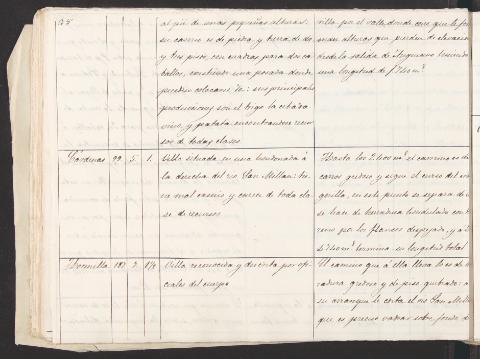 al pié de unas pequeñas alturas:
su caserio es de piedra, y tierra de do
y tres pisos, con cuadras para dos ca
ballos, existiendo una posada donde
pueden colocarse: sus principales
producciones son el trigo la cebada
vino, y patata, encontrandose recur
sos de todas clases
villa por el valle, donde corre que le for
man alturas que pierden de elevacion
desde la salida de Anguiano teniendo
una longitud de
Cárdenas 99 5 1.
Villa situada en una hondonada á
la derecha del rio San Millan: tie
ne mal caserio y carece de toda cla
se de recursos
Hasta los el camino es de
carros gredoso y sigue el curso del
en este punto se separa de
se hace de herradura
reno por los flancos despejado, y a
termina su longitud total
Hormilla
Villa reconocida y descrita por ofi
ciales del cuerpo
El camino que á ella lleva lo es de
radura gredoso y de piso quebrado: a
su arranque le corta el rio San Mill
que es preciso vadear sobre fondo de